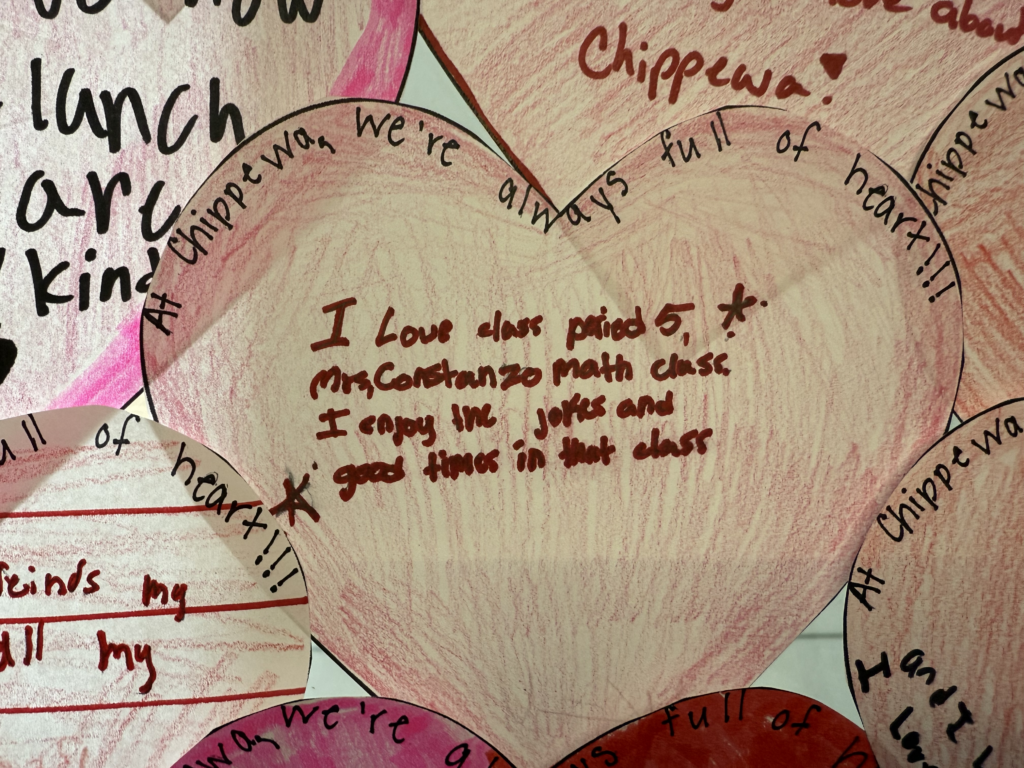 lunch
are
kind
about
Chippewa!
At Chippewa, we're always full of heart!!!
I Love class peried 5,
Mrs,Constanzo math class.
I enjoy the jokes and
good times in that class
Chippewa
full of heart!!!
my
all my
At Chippewa
I and I
we're
full of